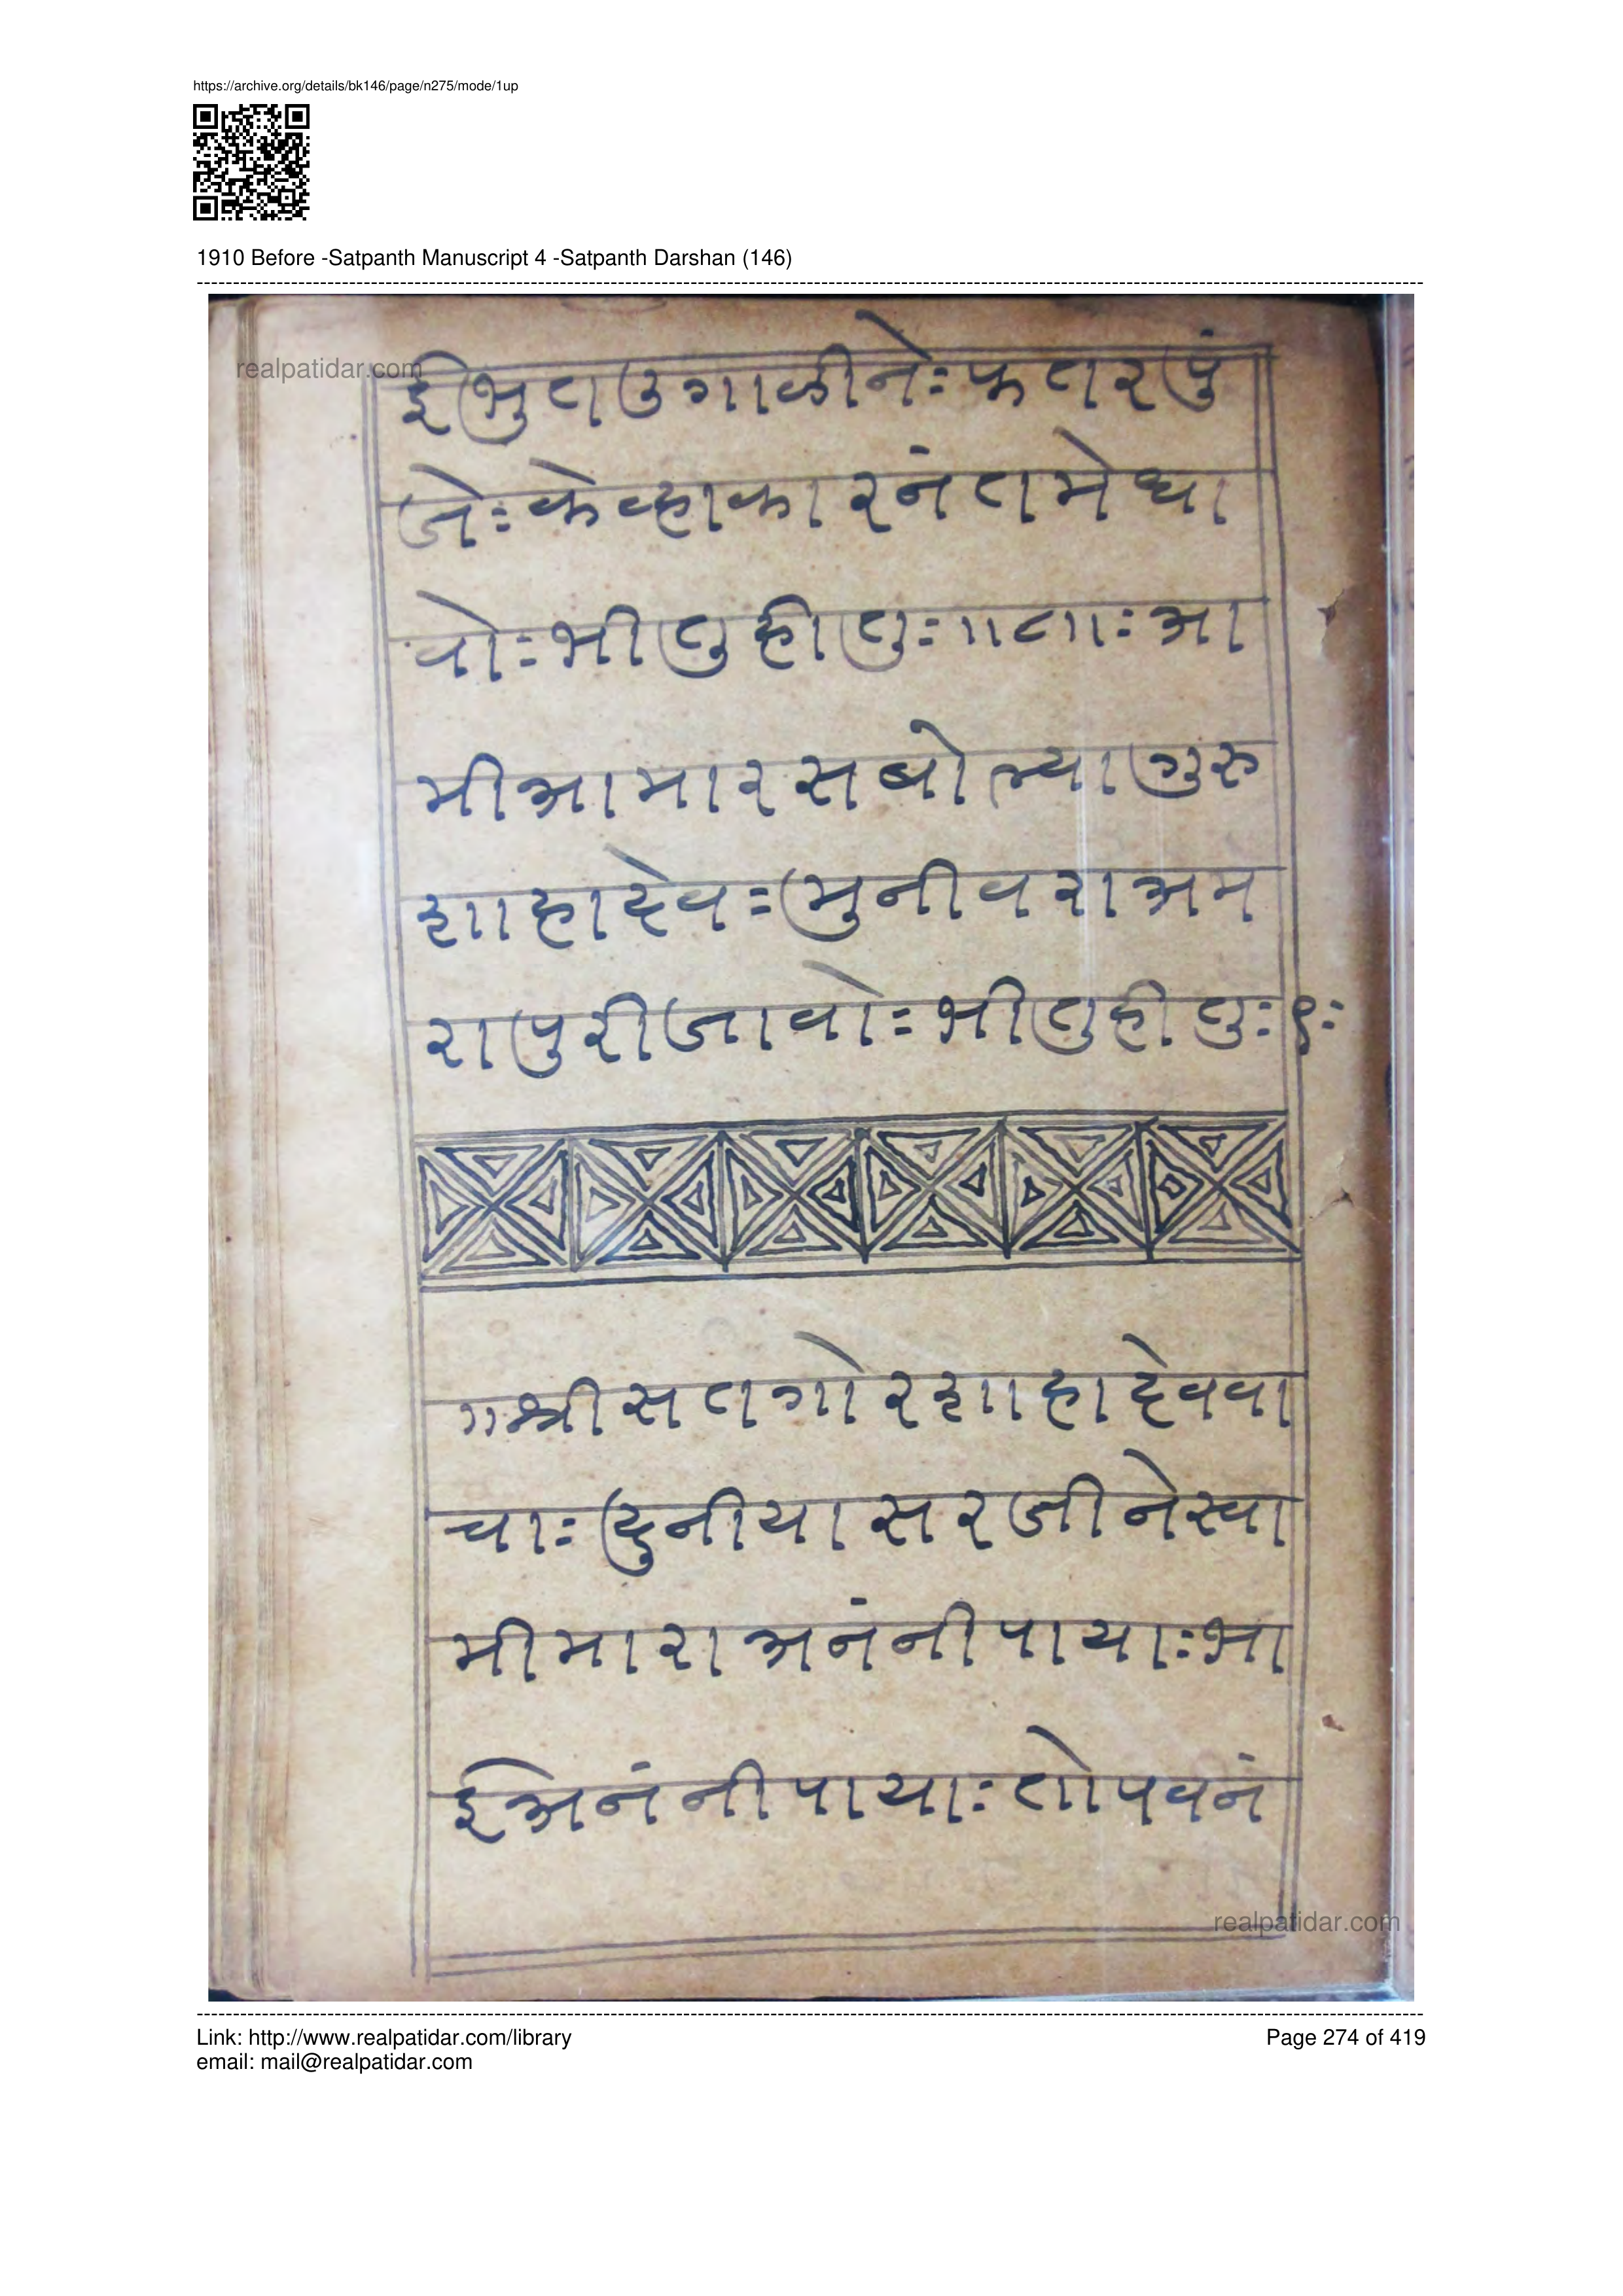 https://archive.org/details/bk146/page/n275/mode/1up
1910 Before -Satpanth Manuscript 4 -Satpanth Darshan (146)
realpatidar.com
ईभुतउगाळीनेः फतरपुं
जेः केव्हाकारनंतमेधा
वोःभीलुहीलुः॥८॥ः आ
मीआमारसबोल्यागुरु
शाहादेवःमुनीवराअम
रापुरीजावोःभीलुहीलुः९ः
॥श्रीसतगोरशाहादेववा
चाः दुनीयासरजीनेस्वा
मीमाराअनंनीपायाःभा
ईअनंनीपायाःतोपवनं
realpatidar.com
Link: http://www.realpatidar.com/library
email: mail@realpatidar.com
Page 274 of 419